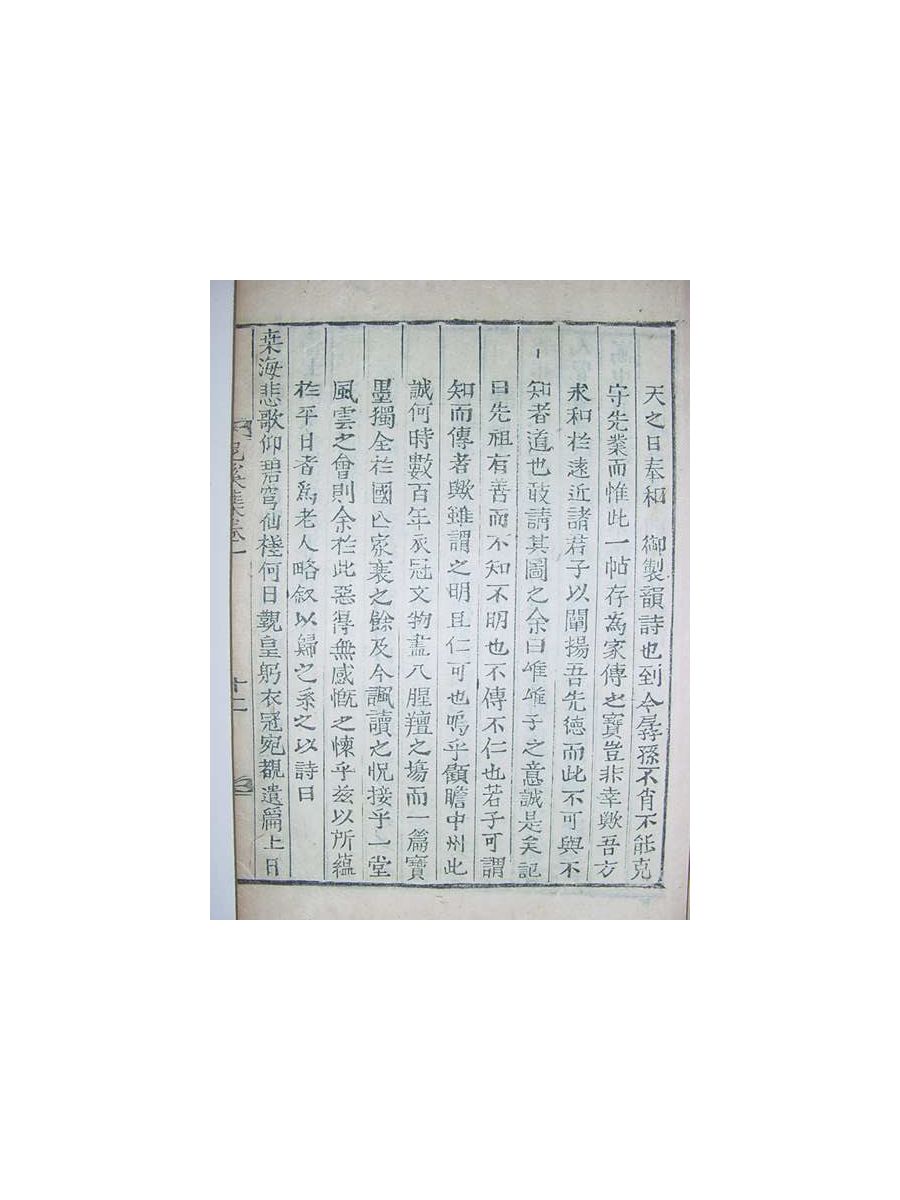 天之日奉和　御製韻詩也到今孱孫不肖不能克
守先業而惟此一帖存為家傳之寶豈非幸歟吾方
求和於遠近諸君子以闡揚吾先德而此不可與不
知者道也敢請其圖之余曰唯唯子之意誠是矣記
曰先祖有善而不知不明也不傳不仁也若子可謂
知而傳者歟雖謂之明且仁可也嗚乎顧瞻中州此
誠何時數百年衣冠文物盡入腥羶之場而一篇寶
墨獨全於國亾家喪之餘及今諷讀之怳接乎一堂
風雲之會則余於此惡得無感慨之悚乎玆以所蘊
於平日者爲老人略叙以歸之系之以詩曰
桒海悲歌仰碧穹仙棧何日覲皇躬衣冠宛覩遺篇上日
溪集卷一
十二